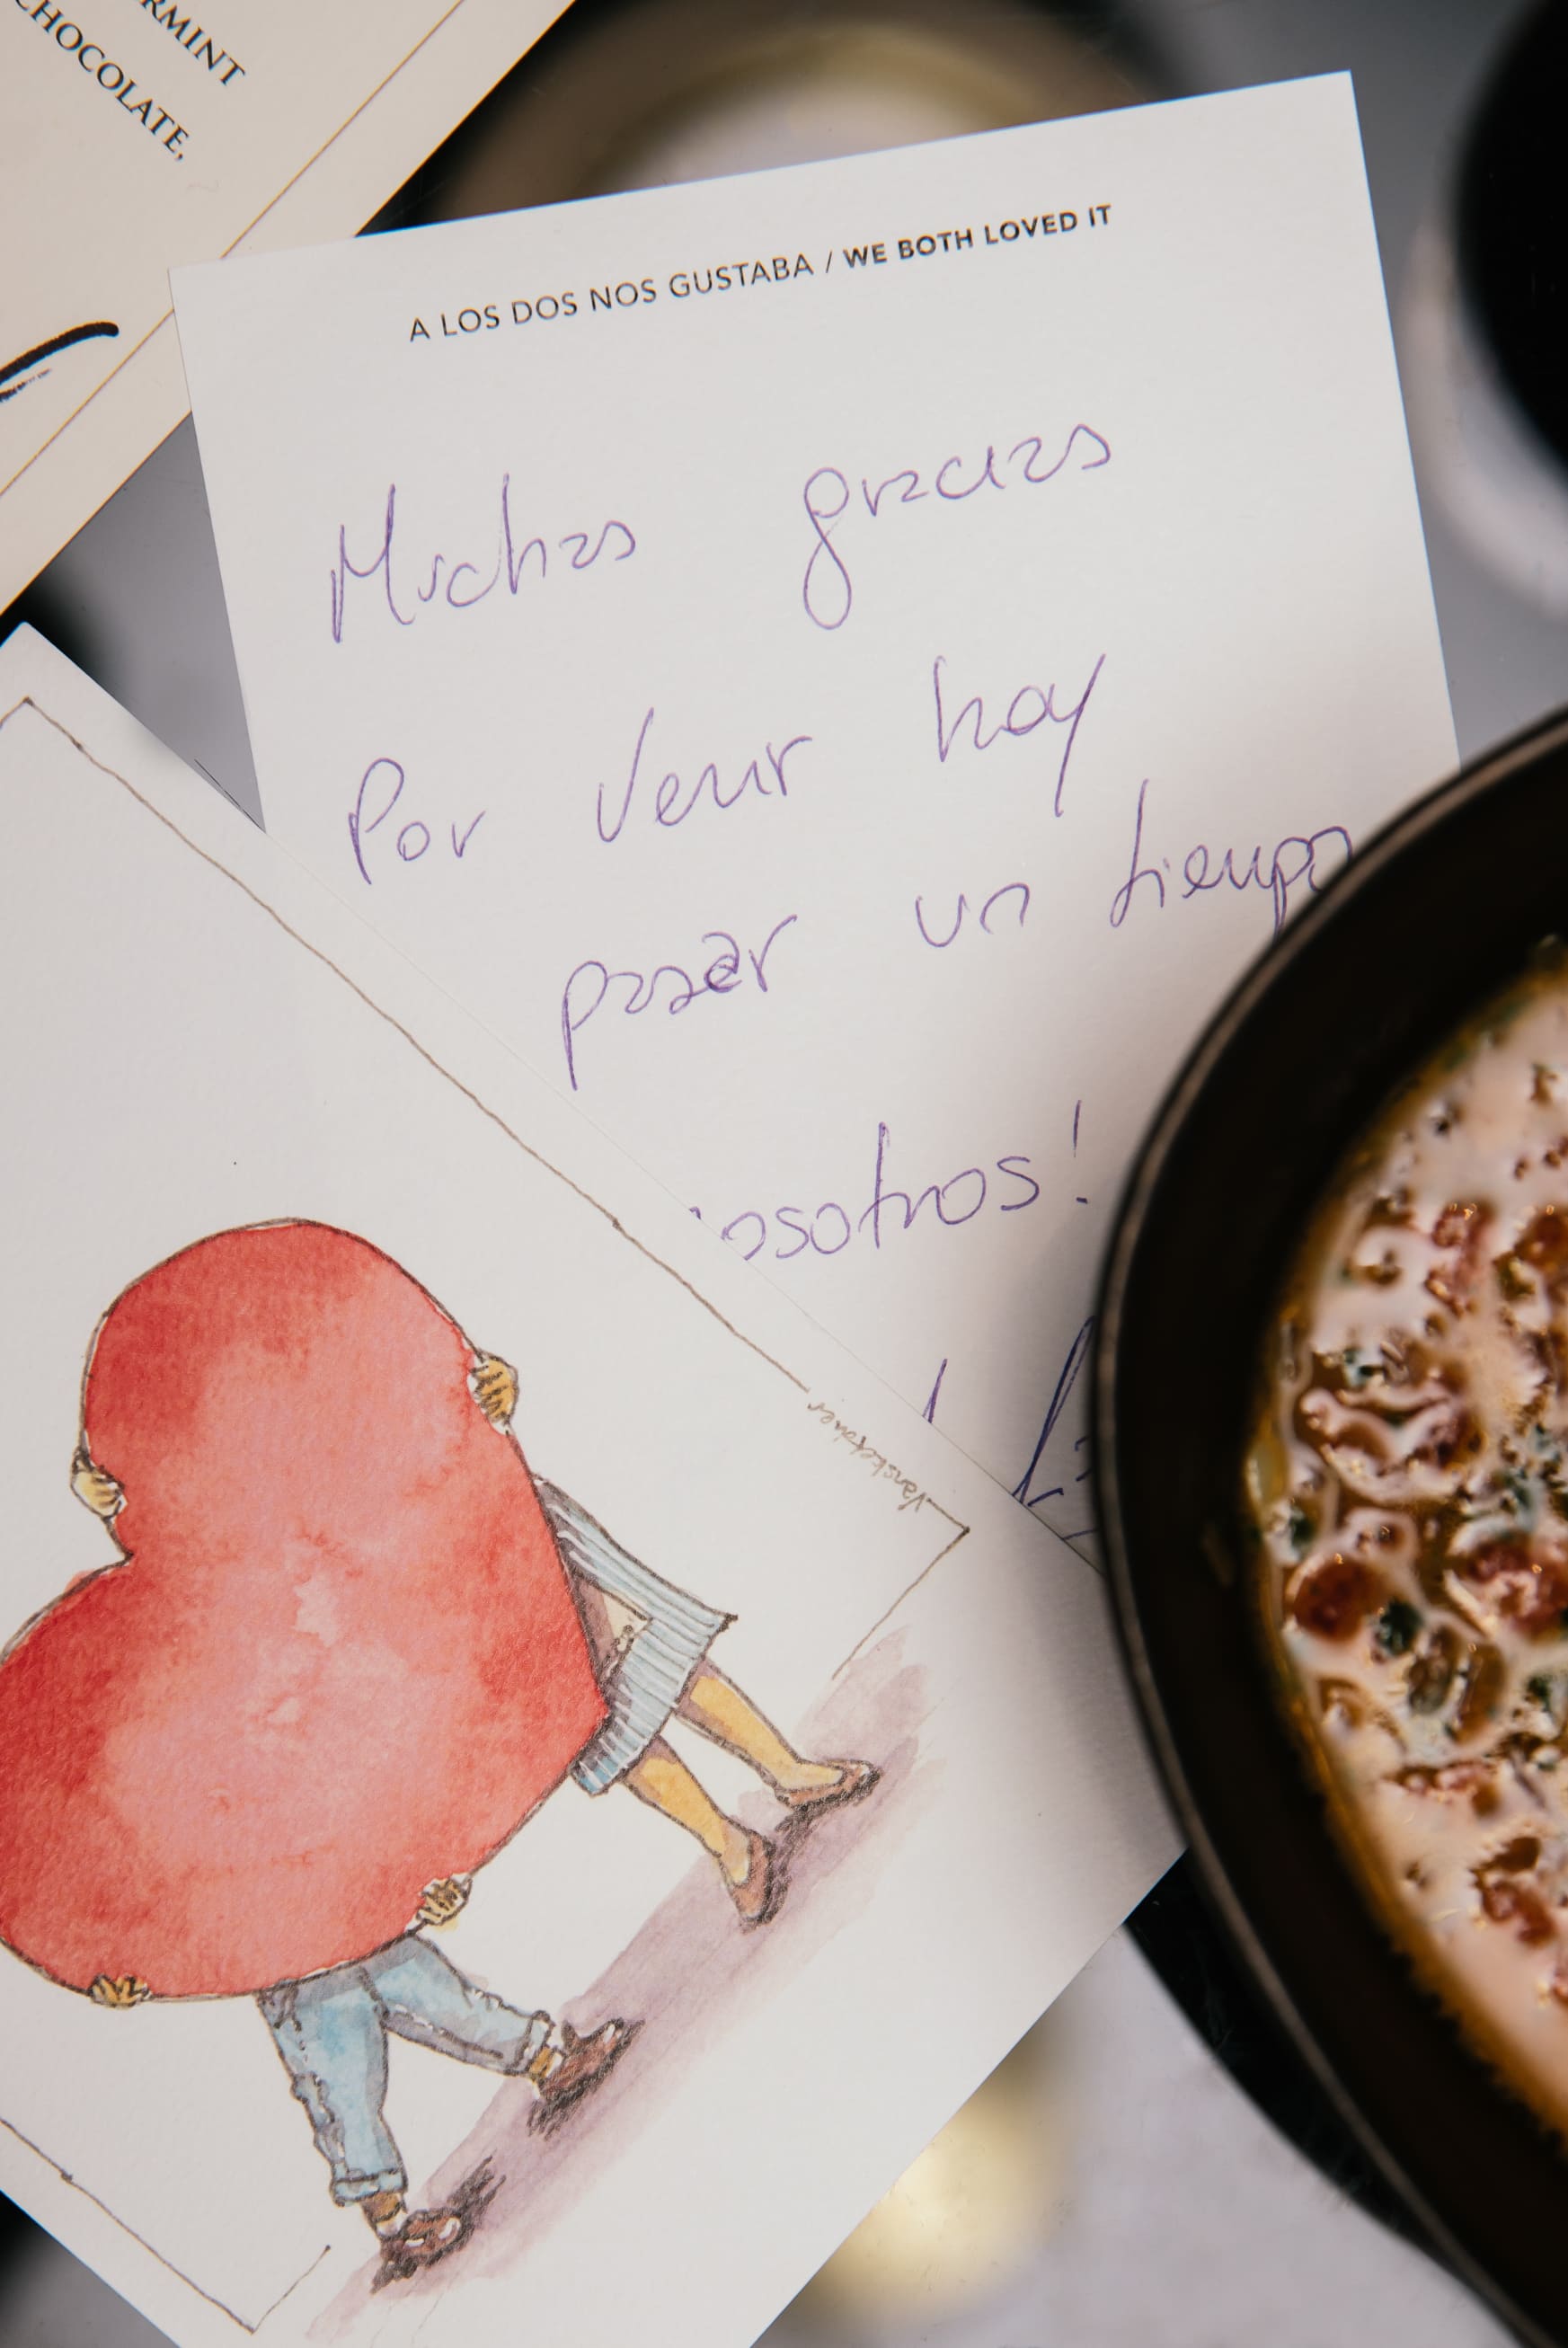 RMINT
CHOCOLATE,
A LOS DOS NOS GUSTABA / WE BOTH LOVED IT
Muchas gracias
Por venir hoy
pasar un tiempo
osotros!